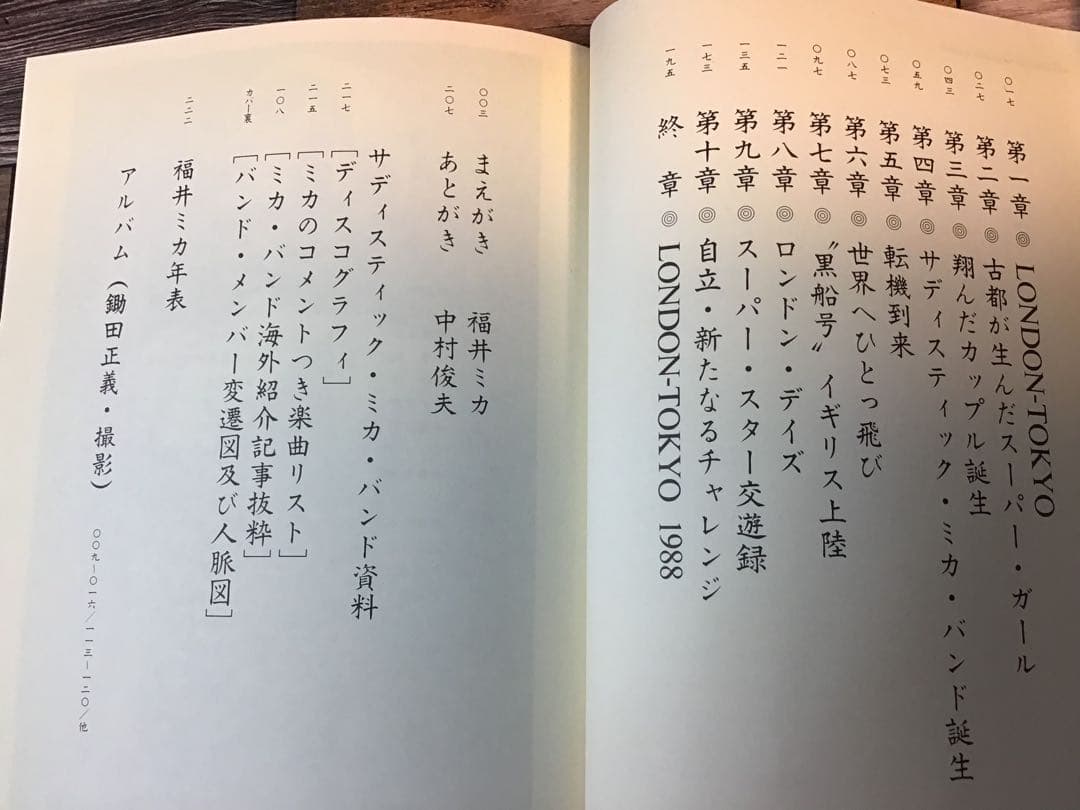 〇一七 第一章 ◎ LONDON-TOKYO
〇二七 第二章 ◎ 古都が生んだスーパー・ガール
〇四三 第三章 ◎ 翔んだカップル誕生
〇五九 第四章 ◎ サディスティック・ミカ・バンド誕生
〇七三 第五章 ◎ 転機到来
〇八七 第六章 ◎ 世界へひとっ飛び
〇九七 第七章 ◎ 〝黒船号〟イギリス上陸
一二一 第八章 ◎ ロンドン・デイズ
一三五 第九章 ◎ スーパー・スター交遊録
一七三 第十章 ◎ 自立・新たなるチャレンジ
一九五 終章 ◎ LONDON-TOKYO 1988
〇〇三 まえがき 福井ミカ
二〇七 あとがき 中村俊夫
サディスティック・ミカ・バンド資料
二一七 [ディスコグラフィ]
二一五 [ミカのコメントつき楽曲リスト]
一〇八 [ミカ・バンド海外紹介記事抜粋]
カバー裏 [バンド・メンバー変遷図及び人脈図]
二二二 福井ミカ年表
アルバム(鋤田正義・撮影) 〇〇九–〇一六/一一三–一二〇/他